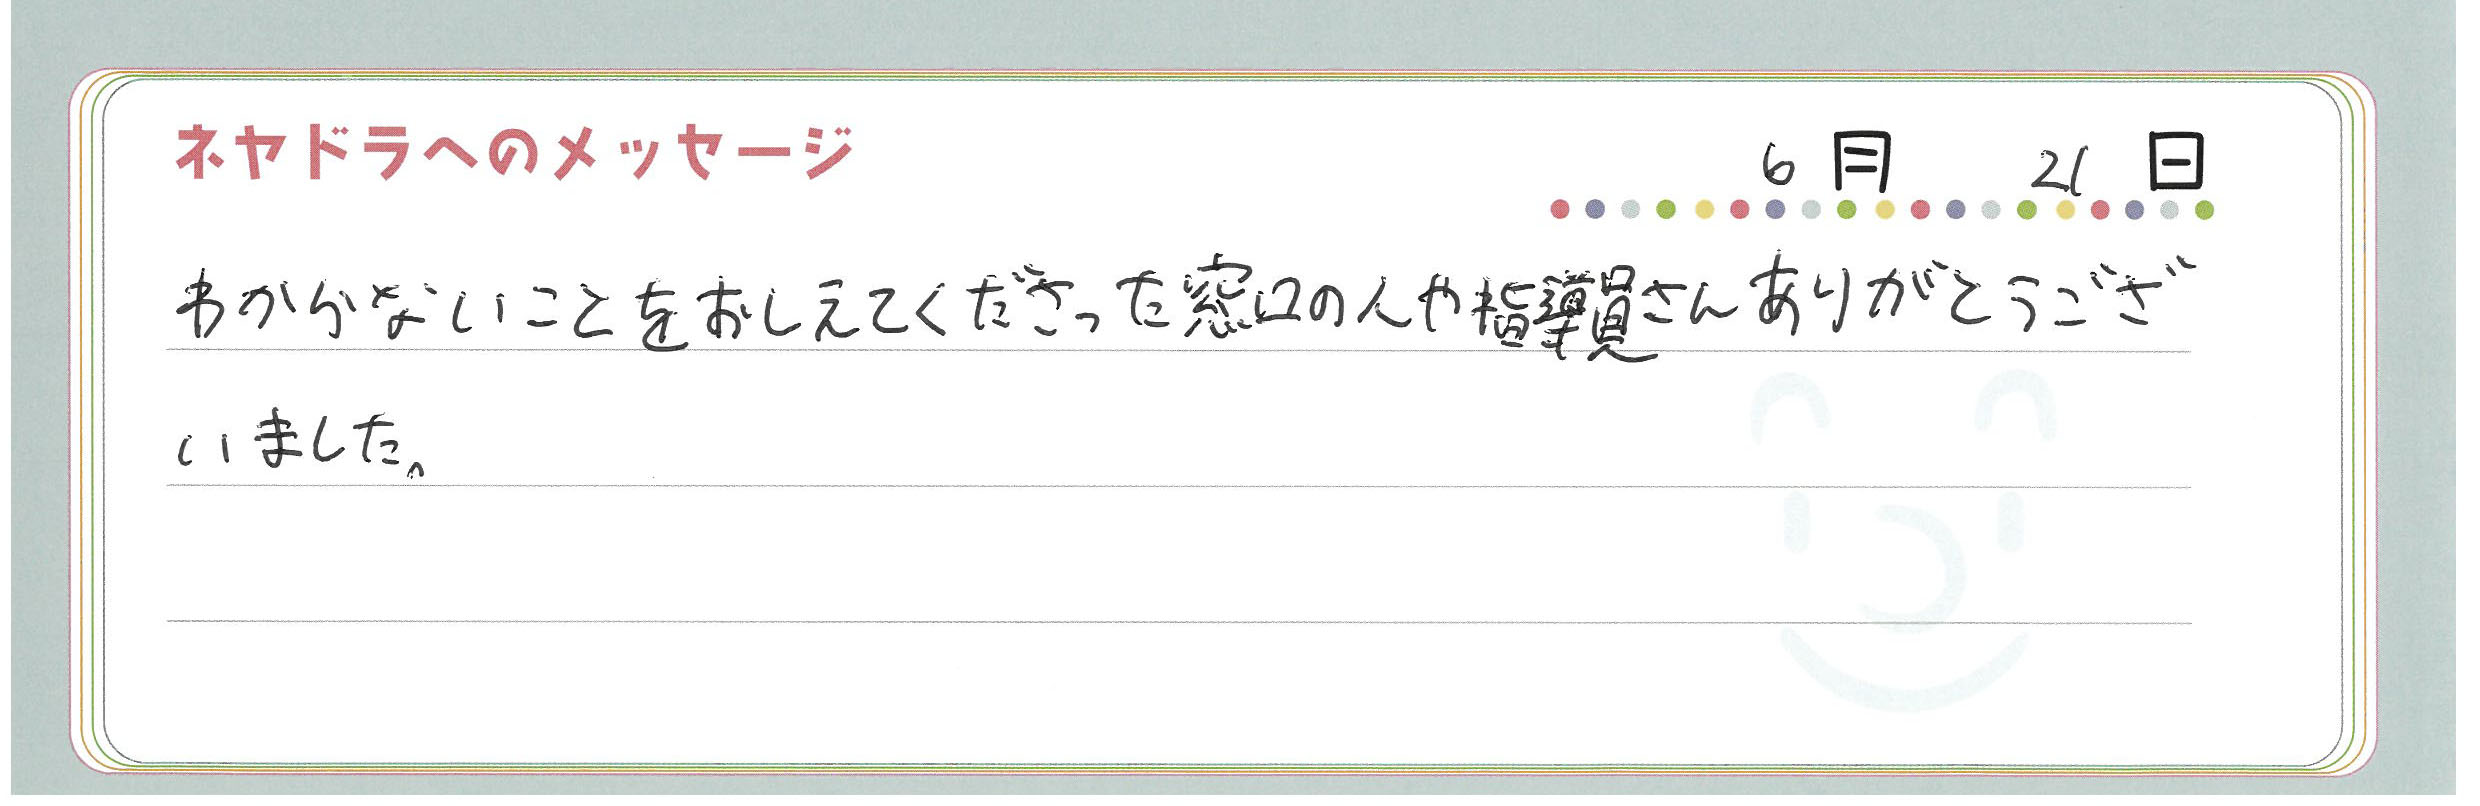 ネヤドラへのメッセージ
6月 21日
わからないことをおしえてくださった窓口の人や指導員さんありがとうござ
いました。